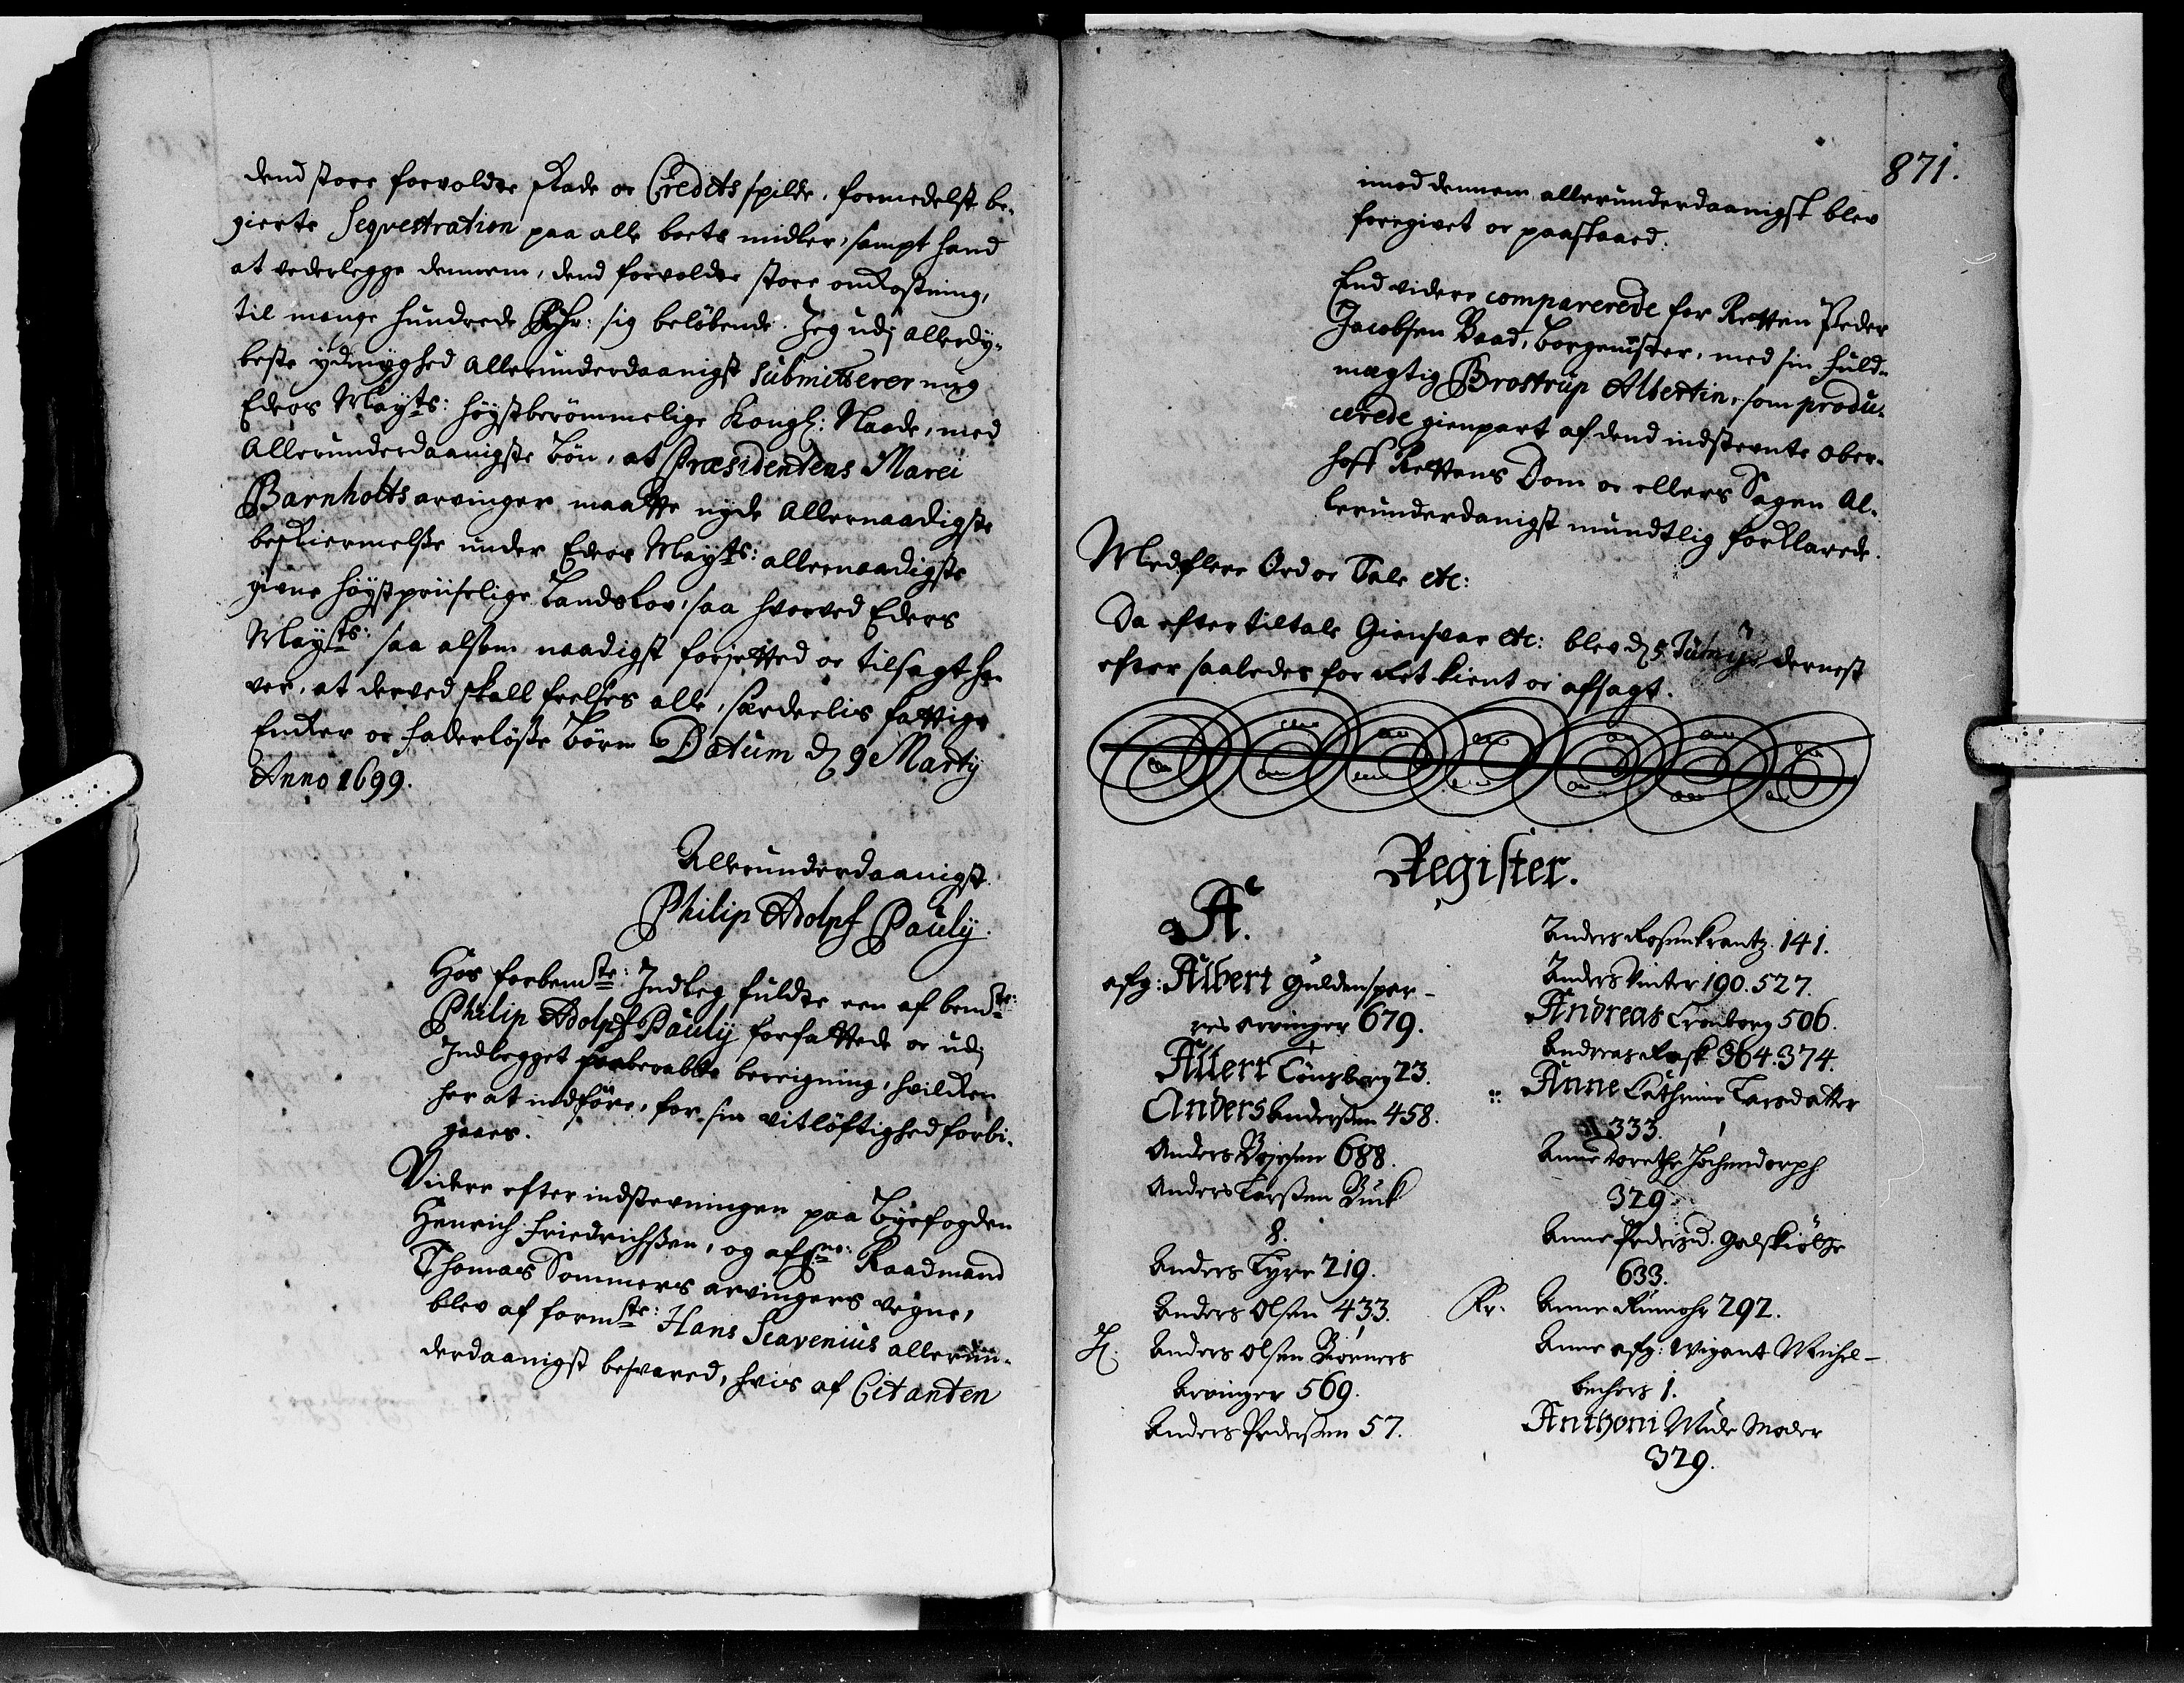 dend store forvoldte skade oc Credits spilde, formedelst be-
gierte Seqvestration paa alle boets midler, sampt hand
at vederlegge dennem, dend forvoldte store omkostning,
til mange hundrede Rdr: sig beløbende. Jeg udj allerdy-
beste ydmyghed Allerunderdaanigst submitterer mig
Eders Mayts: høystberømmelige Kongl: Naade, med
Allerunderdaanigste bøn, at Præsidentens Marci
Barnholts arvinger maatte nyde Allernaadigste
beskiermelsse under Eders Mayts: allernaadigste
givne høystprüselige Landslov, saa hvorved Eders
Mayts: saa alsom naadigst forjetted oc tilsagt ha-
ver, at derved skall frelses alle, særdeelis fattige
Encker oc faderløsse børn Datum d 9 Martij
Anno 1699.
Allerunderdaanigst.
Philip Adolpf Pauly.
Hos forbemte: Indleg fuldte een af bemte:
Philip Adolpf Pauly forfattede oc udj
Indlegget beregning, hvilken
her at indføre, for sin vitløftighed forbi-
gaaes.
Videre efter indstevningen paa Byefogden
Henrich Friedrichssen, og afgne: Raadmand
Thomas Sommers arvingers vegne,
blev af formte: Hans Scavenius allerun-
derdaanigst besvared, hvis af Citanten
871.
imod dennem allerunderdaanigst blev
foregivet oc paastaaed.
End videre comparerede for Retten Peder
Jacobsen Baad, borgemster, med sin fuld-
mægtig Brostrup Albertin, som produ-
cerede gienpart af dend indstevnte ober-
hoff Rettens Dom oc ellers Sagen Al-
lerunderdanigst mundtlig forklarede.
Med flere Ord oc Tale etc:
Da efter tiltale Giensvar etc: blev d 5 dernest
efter saaledes for Ret kient oc afsagt.
Register.
A.
afg: Albert Guldenspar-
res arvinger 679.
Allert Tönsberg 23.
Anders Anderssen 458.
Anders Bojesen 688.
Anders Larssen Buck
8.
Anders Lyre 219.
Anders Olsen 433.
Anders Olsen Biörners
Arvinger 569.
Anders Pederssen 57.
Anders Rosenkrantz. 141.
Anders Vinter 190. 527.
Andreas Cronborg 506.
Andreas Rask 364. 374.
:: Anne Cathrine Larsdatter
333.
Anne Dorethe Jochendorph
329.
Anne Pedersd. Galskiötte
633.
Fr. Anne Rumohr 292.
Anne afg: Wigant Michel-
beckers 1.
Anthoni Mule Moder
329.